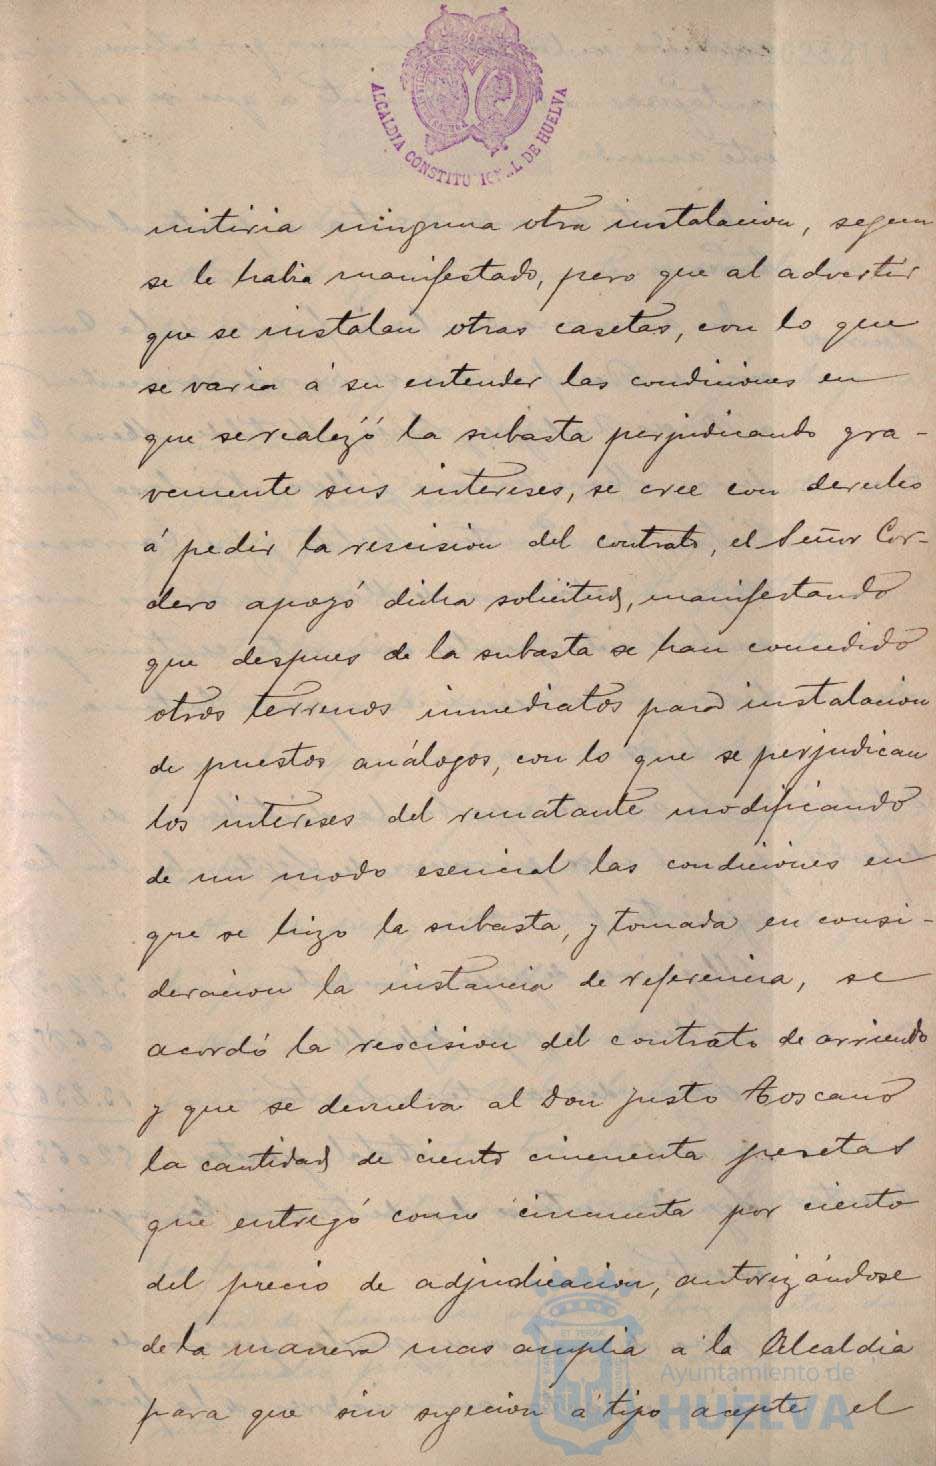 ALCALDIA CONSTITUCIONAL DE HUELVA
mitiria ninguna otra instalacion, segun
se le habia manifestado, pero que al advertir
que se instalan otras casetas, con lo que
se varia á su entender las condiciones en
que se realizó la subasta perjudicando gra-
vemente sus intereses, se cree con derecho
á pedir la rescision del contrato, el Señor Cor-
dero apoyó dicha solicitud, manifestando
que despues de la subasta se han concedido
otros terrenos inmediatos para instalacion
de puestos análogos, con lo que se perjudican
los intereses del rematante modificando
de un modo esencial las condiciones en
que se hizo la subasta, y tomada en consi-
deracion la instancia de referencia, se
acordó la rescision del contrato de arriendo
y que se devuelva al Don Justo Toscano
la cantidad de ciento cincuenta pesetas
que entregó como cincuenta por ciento
del precio de adjudicacion, autorizándose
de la manera mas amplia a la Alcaldia
para que sin sugecion á tipo acepte el
Ayuntamiento de
HUELVA